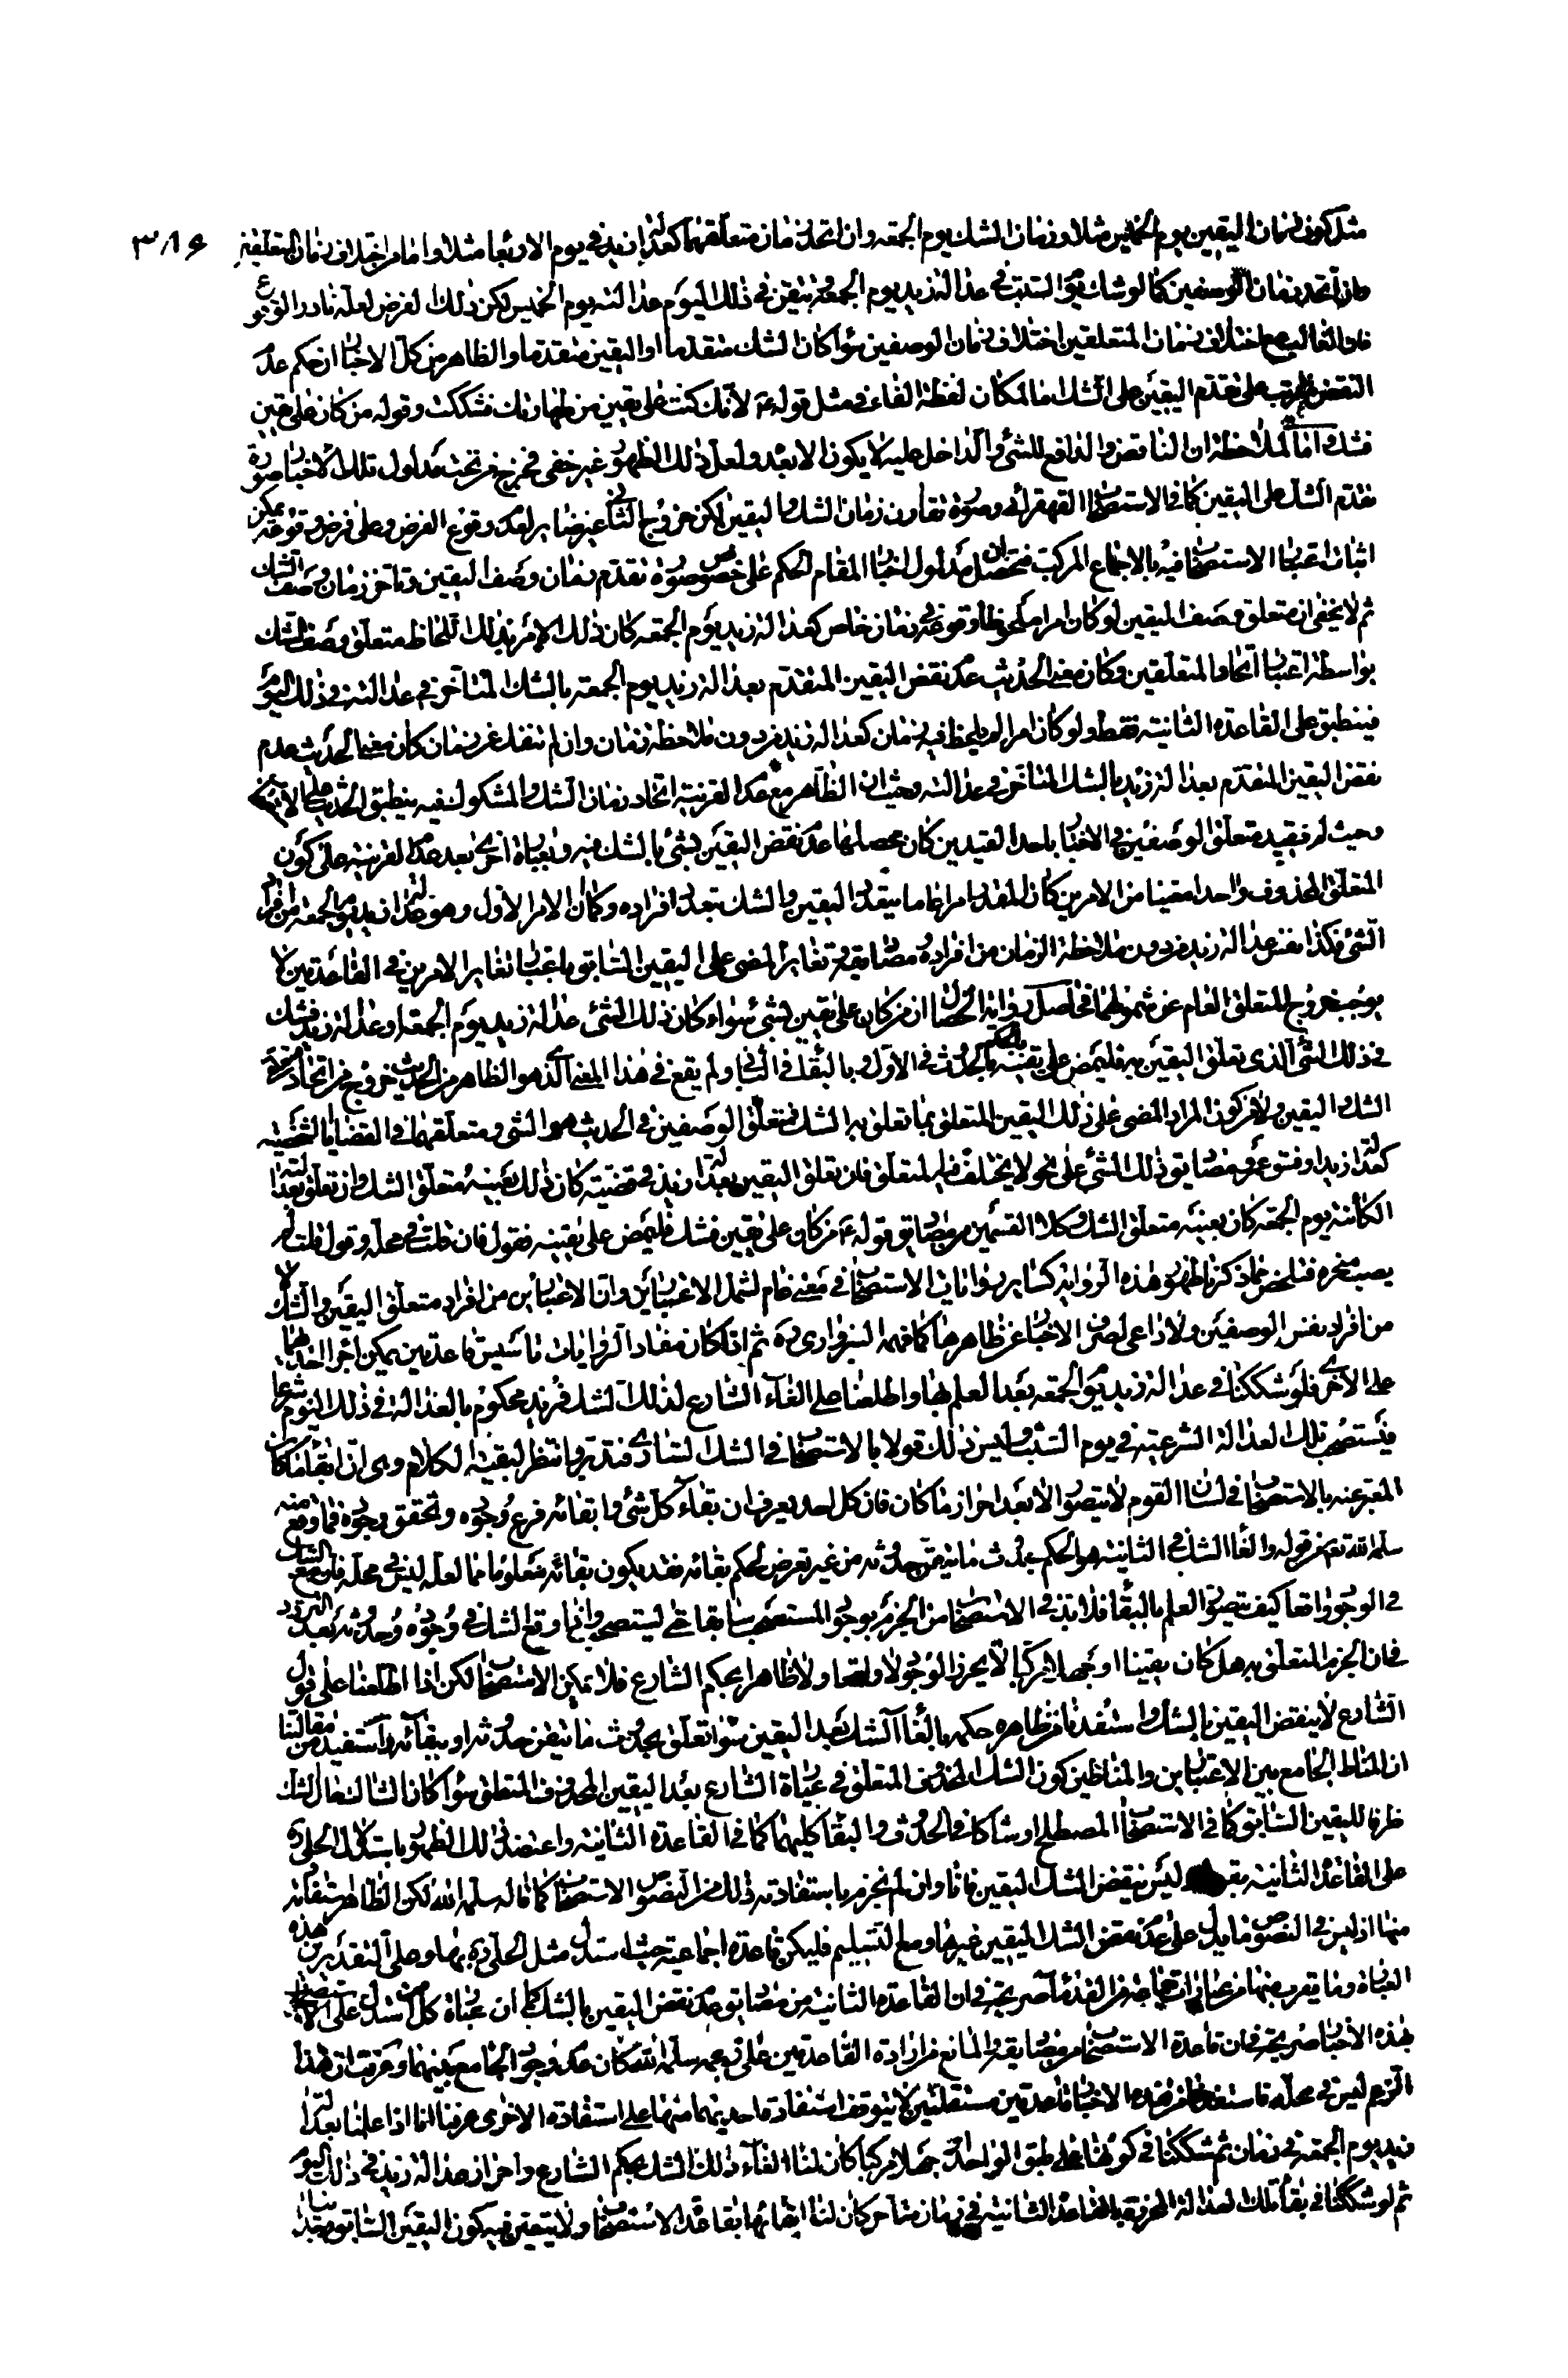 ٣٨۶
مثل كون زمان اليقين يوم الخميس مثلا وزمان الشك يوم الجمعه وان اتحد زمان متعلقهما كعدالة زيد فى يوم الاربعا مثلا واما مع اختلاف زمان المتعلقين
فان اتحد زمان الوصفين كما لو شك يوم السبت فى عدالة زيد يوم الجمعة وتيقن فى ذلك اليوم عدالته يوم الخميس لكن ذلك الفرض لعله نادر الوقوع
فان الغالب مع اختلاف زمان المتعلقين اختلاف زمان الوصفين سواء كان الشك متقدما او اليقين متقدما والظاهر من كل الاخبار ان حكم عدم
النقض مترتب على تقدم اليقين على الشك اما لمكان لفظة الفاء فى مثل قوله ع لانك كنت على يقين من طهارتك فشككت وقوله من كان على يقين
فشك واما لملاحظة ان الناقض والدافع للشئ والداخل عليه لا يكون الا بعده ولعل ذلك الظهور غير خفى فخرج من تحت مدلول تلك الاخبار صورة
تقدم الشك على اليقين كما فى الاستصحاب القهقرائى وصورة تقارن زمان الشك واليقين لكن خروج الثانى غير ضاير لعدم وقوع الفرض وعلى فرض وقوعه يمكن
اثبات اعتبار الاستصحاب فيه بالاجماع المركب فتحصل ان مدلول اخبار المقام الحكم على خصوص صورة تقدم زمان وصف اليقين وتاخر زمان وصف الشك
ثم لا يخفى ان متعلق وصف اليقين لو كان امرا ملحوظا وقوعه فى زمان خاص كعدالة زيد يوم الجمعه كان ذلك الامر بذلك اللحاظ متعلق وصف الشك
بواسطة اعتبار اتحاد المتعلقين وكان معنى الحديث عدم نقض اليقين المتقدم بعدالة زيد يوم الجمعه بالشك المتاخر فى عدالته فى ذلك اليوم
فينطبق على القاعدة الثانية فقط ولو كان امرا لم يلحظ فيه زمان كعدالة زيد من دون ملاحظة زمان وان لم تنفك عن زمان كان معنى الحديث عدم
نقض اليقين المتقدم بعدالة زيد بالشك المتاخر فى عدالته وحيث ان الظاهر مع عدم القرينة اتحاد زمان الشك والمشكوك فيه ينطبق الحديث على
وحيث لم يقيد متعلق الوصفين فى الاخبار باحد القيدين كان محصلها عدم نقض اليقين بشئ بالشك فيه وبعبارة اخرى بعد عدم القرينة على كون
المتعلق المحذوف واحدا معينا من الامرين كان المقدر امرا عاما يتعدد اليقين والشك بتعدد افراده وكما ان الامر الاول وهو عدالة زيد يوم الجمعه من افراد
الشئ فكذا نفس عدالة زيد من دون ملاحظة الزمان من افراده ومصاديقه وتغاير المضى على اليقين السابق باعتبار تغاير الامرين فى القاعدتين لا
يوجب خروج المتعلق العام عن شمولهما فحاصل رواية الخصال ان من كان على يقين بشئ سواء كان ذلك الشئ عدالة زيد يوم الجمعه او عدالة زيد فشك
فى ذلك الشئ الذى تعلق اليقين به فليمض على يقينه بالحكم بالحدوث فى الاول وبالبقاء فى الثانى ولم يقع فى هذا المعنى الذى هو الظاهر من الحديث خروج من اتحاد
الشك واليقين ولا من كون المراد المضى على ذلك اليقين المتعلق بما تعلق به الشك فمتعلق الوصفين فى الحديث هو الشئ ومتعلقهما فى القضايا الشخصية
كعدالة زيد او فسق عمرو مصاديق ذلك الشئ على نحو لا يختلف فيه المتعلق فان تعلق اليقين بعدالة زيد فى قضية كان ذلك بعينه متعلق الشك وان تعلق بعدالته
الكائنة يوم الجمعه كان بعينه متعلق الشك وكلا القسمين من مصاديق قوله ع من كان على يقين فشك فليمض على يقينه فقول فان قلت فى محله وقول قلت لم
يصب مخره فتلخص مما ذكر ظهور هذه الرواية كسائر روايات الاستصحاب فى معنى عام لشمل الاعتبارين وان الاعتبارين من افراد متعلق اليقين والشك لا
من افراد نفس الوصفين ولا داعى لصرف الاخبار عن ظاهرها كما فهمه السبزوارى ره ثم اذا كان مفاد الروايات تاسيس قاعدتين يمكن اجراء احدهما
على الاخرى فلو شككنا فى عدالة زيد يوم الجمعه بعد العلم بها واطلعنا على الغاء الشارع لذلك الشك فزيد محكوم بالعدالة فى ذلك اليوم شرعا
فيستصحب تلك العدالة الشرعية فى يوم السبت وليس ذلك قولا بالاستصحاب فى الشك السارى فتدبر وانتظر لبقية الكلام وهى ان ابقاء ما كان
المعبر عنه بالاستصحاب فى لسان القوم لا يتصور الا بعد احراز ما كان فان كل احد يعرف ان بقاء كل شئ وابقائه فرع وجوده وتحقق وجوده فما وقع منه
سلمه الله تعم من قوله والغاء الشك فى الثانية هو الحكم بحدوث ما تيقن حدوثه من غير تعرض لحكم بقائه فقد يكون بقائه معلوما مما لعله ليس فى محله فان مع الشك
فى الوجود واقعا كيف يتصور العلم بالبقاء فلابد فى الاستصحاب من الجزم بوجود المستصحب سابقا حتى يستصحب وانما وقع الشك فى وجوده وحدوثه بعد التردد
فان الجزم المتعلق به هل كان يقينا او جهلا مركبا لا يحرز الوجود لا واقعا ولا ظاهرا بحكم الشارع فلا تمكين الاستصحاب لكن اذا اطلعنا على قول
الشارع لا ينقض اليقين بالشك واستفدنا من ظاهره حكمه بالغاء الشك بعد اليقين سواء تعلق بحدوث ما تيقن حدوثه او ببقائه واستفيد من مقالتنا
ان المناط الجامع بين الاعتبارين والمناطين كون الشك المحذوف المتعلق فى عبارة الشارع بعد اليقين المحذوف المتعلق سواء كان الشاك حال الشك
ظرفا لليقين السابق كما فى الاستصحاب المصطلح او شاكا فى الحدوث والبقاء كليهما كما فى القاعدة الثانية واعتضد ذلك الظهور باستدلال الحلى ره
على القاعدة الثانية بقوله ليس ينقض الشك اليقين فانا وان لم نجزم باستفادته ذلك من النصوص الاستصحاب كما قاله سلمه الله لكن الظاهر استفادته
منها اذ ليس فى النصوص ما يدل على عدم نقض الشك اليقين غيرها ومع التسليم فليكن قاعدة اجماعية حيث استدل مثل الحلى ره بها وعلى التقديرين هذه
العبارة وما يقرب منها من عبارات جماعة من القدماء صريحة فى ان القاعدة الثانية من مصاديق عدم نقض اليقين بالشك كما ان عبارة كل من استدل على الاستصحاب
بهذه الاخبار صريحة فى ان قاعدة الاستصحاب من مصاديقه والمانع من ارادة القاعدتين على زعمه سلمه الله كان عدم وجود الجامع بينهما وعرفت ان هذا
الزعم ليس فى محله فاستفدنا من هذه الاخبار قاعدتين مستقلتين لا يتوقف استفادة احديهما منها على استفادة الاخرى عرفنا انا اذا علمنا بعدالة
زيد يوم الجمعه فى زمان ثم شككنا فى كونه على طبق الواحد جهلا مركبا كان لنا الغاء ذلك الشك بحكم الشارع واحراز عدالة زيد فى ذلك اليوم
ثم لو شككنا فى بقاء تلك العدالة المحرزة بالقاعدة الثانية فى زمان متاخر كان لنا ابقائها بقاعدة الاستصحاب ولا يتعين فيه كون اليقين السابق